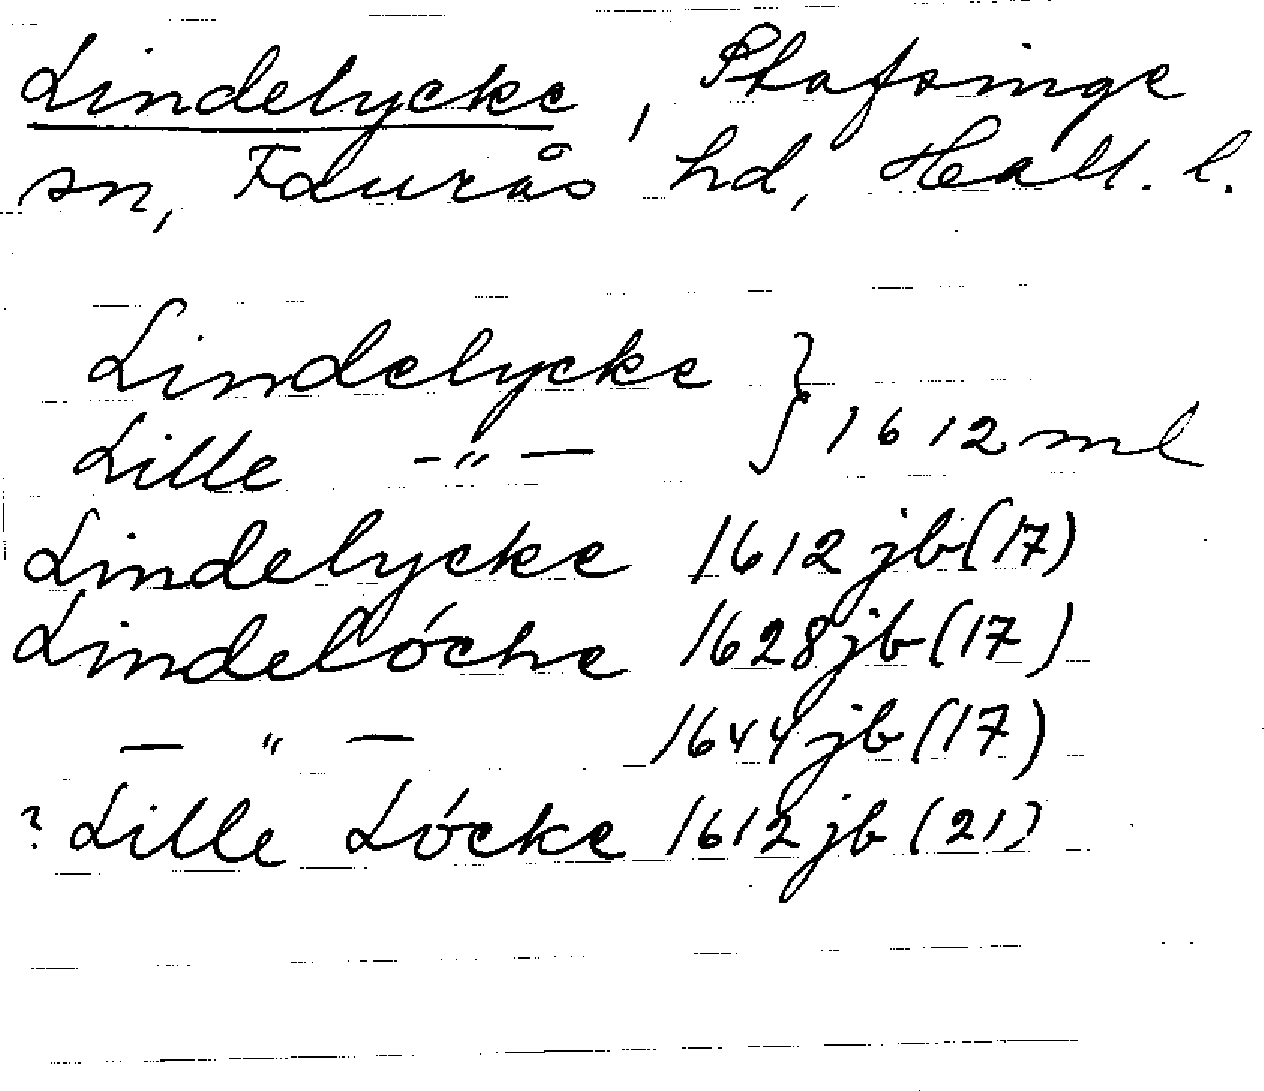 Lindelycke, Stafsinge
sn, Faurås hd, Hall. l.
Lindelycke } 1612 ml
Lille —〃—
Lindelycke 1612 jb (17)
Lindelócke 1628 jb (17)
— 〃 — 1644 jb (17)
? Lille Lócke 1612 jb (21)